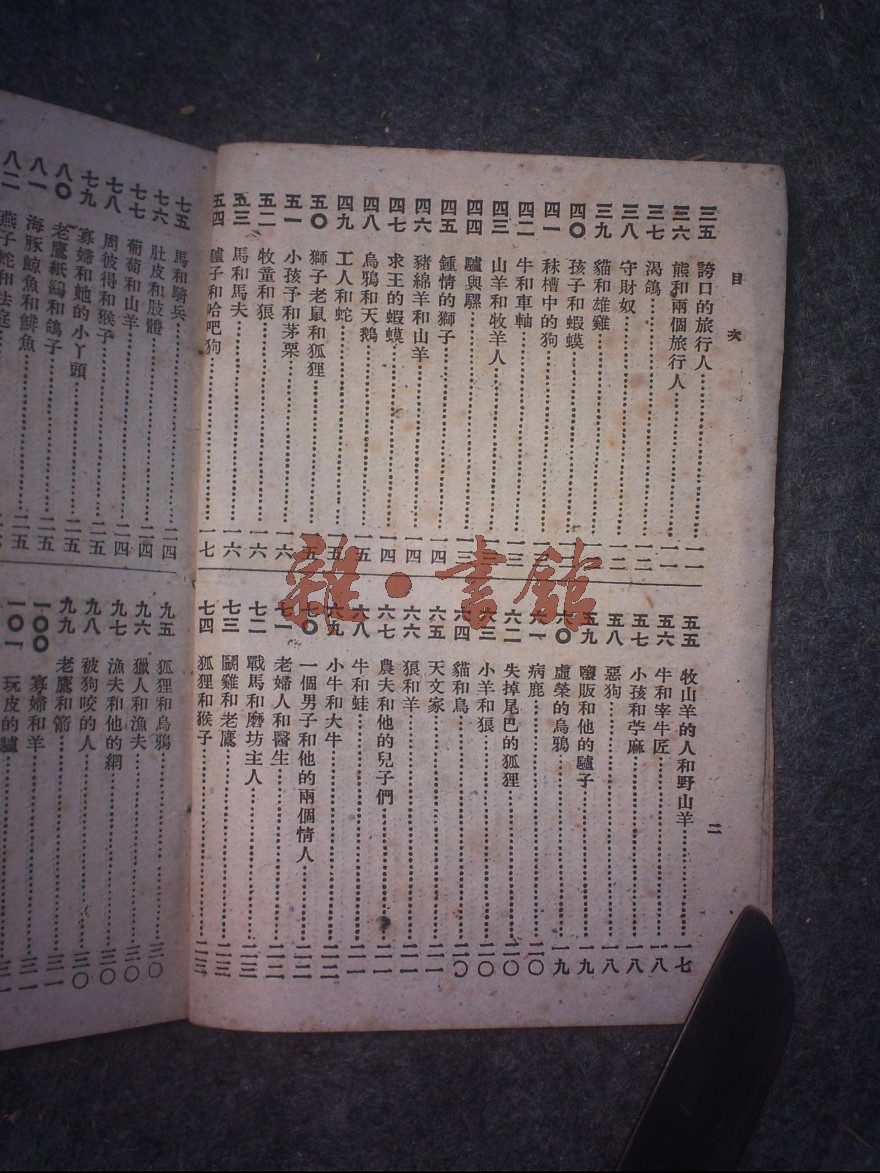 目次
三五 誇口的旅行人……一一
三六 熊和兩個旅行人……一一
三七 渴鴿……一二
三八 守財奴……一二
三九 貓和雄雞……
四〇 孩子和蝦蟆……
四一 秣槽中的狗……
四二 牛和車軸……一三
四三 山羊和牧羊人……
四四 驢與騾……一三
四五 鍾情的獅子……一四
四六 豬綿羊和山羊……一四
四七 求王的蝦蟆……一四
四八 烏鴉和天鵝……一五
四九 工人和蛇……
五〇 獅子老鼠和狐狸……
五一 小孩子和茅栗……一六
五二 牧童和狼……一六
五三 馬和馬夫……一六
五四 驢子和哈吧狗……一七
五五 牧山羊的人和野山羊……一七
五六 牛和宰牛匠……一八
五七 小孩和苧麻……一八
五八 惡狗……一八
五九 鹽販和他的驢子……一九
六〇 虛榮的烏鴉……一九
六一 病鹿……二〇
六二 失掉尾巴的狐狸……二〇
六三 小羊和狼……二〇
六四 貓和鳥……二〇
六五 天文家……二一
六六 狼和羊……二一
六七 農夫和他的兒子們……二一
六八 牛和蛙……二一
六九 小牛和大牛……二二
七〇 一個男子和他的兩個情人……二二
七一 老婦人和醫生……二二
七二 戰馬和磨坊主人……二三
七三 鬭雞和老鷹……二三
七四 狐狸和猴子……二三
二
七五 馬和騎兵……二四
七六 肚皮和肢體……二四
七七 葡萄和山羊……二四
七八 周彼得和猴子……二五
七九 寡婦和她的小丫頭……二五
八〇 老鷹紙鷂和鴿子……二五
八一 海豚鯨魚和鯡魚……二五
八二 燕子蛇和法庭……
九五 狐狸和烏鴉……三〇
九六 獵人和漁夫……三〇
九七 漁夫和他的網……三〇
九八 被狗咬的人……三〇
九九 老鷹和箭……三一
一〇〇 寡婦和羊……三一
一〇一 玩皮的驢……
雜·書館